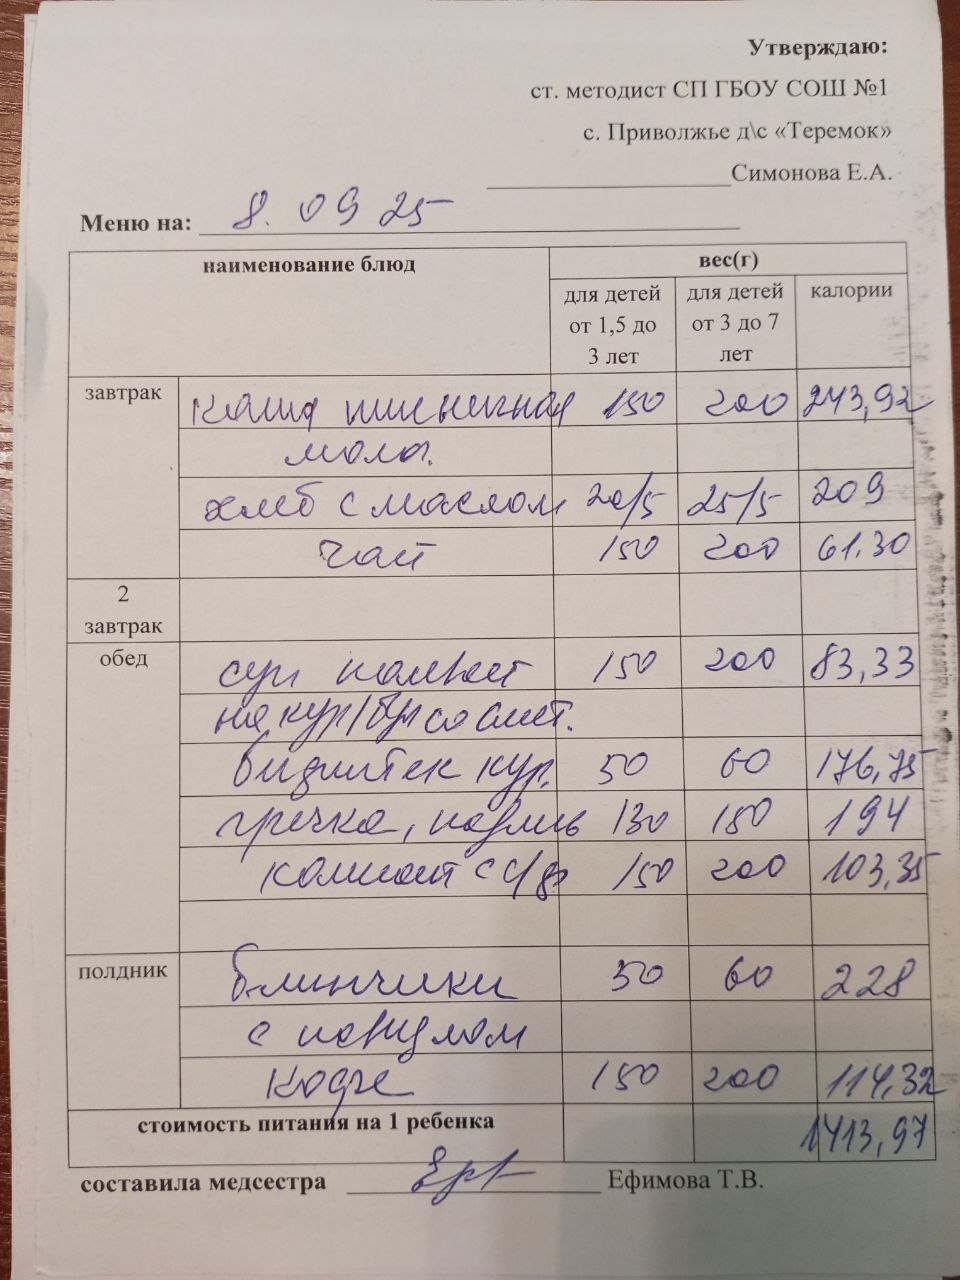 Утверждаю:
ст. методист СП ГБОУ СОШ №1
с. Приволжье д\с «Теремок»
Симонова Е.А.
Меню на: 8. 09 25
наименование блюд вес(г)
для детей от 1,5 до 3 лет для детей от 3 до 7 лет калории
завтрак каша пшеничная 150 200 243,92
молоч.
хлеб с маслом 20/5 25/5 209
чай 150 200 61.30
2 завтрак
обед суп 150 200 83,33
на кур/бул со смет.
бифштек кур. 50 60 176,75
гречка, подлив 130 150 194
компот с с/ф 150 200 103,35
полдник блинчики 50 60 228
с повидлом
кофе 150 200 114,32
стоимость питания на 1 ребенка 1413,97
составила медсестра Ефимова Т.В.